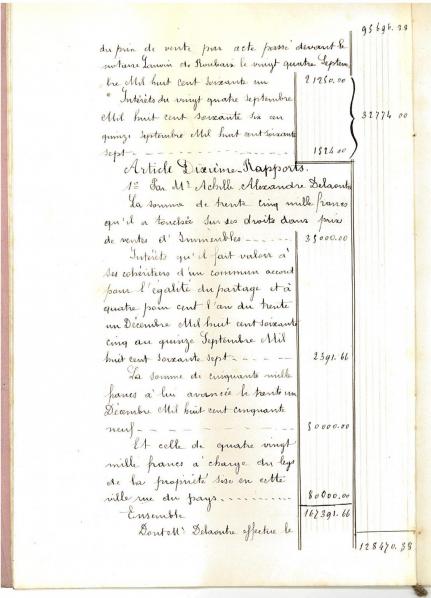 95696.38
du prix de vente par acte passé devant le
notaire de Roubaix le vingt quatre Septem
bre Mil huit cent soixante un 21250.00
Intérêts du vingt quatre septembre
Mil huit cent soixante six au 32774 00
quinze septembre Mil huit cent soixante
sept 1524 00
Article Dixième - Rapports.
1º Par Mr Achille Alexandre Delaoutre
La somme de trente cinq mille francs
qu'il a touchée sur ses droits dans prix
de ventes d'Immeubles 35000.00
Intérêts qu'il fait valoir à
ses cohéritiers d'un commun accord
pour l'égalité du partage et à
quatre pour cent l'an du trente
un Décembre Mil huit cent soixante
cinq au quinze Septembre Mil
huit cent soixante sept 2391.66
La somme de cinquante mille
francs à lui avancée le trente un
Décembre Mil huit cent cinquante
neuf 50000.00
Et celle de quatre vingt
mille francs à charge du legs
de la propriété sise en cette
ville rue du pays 80000.00
Ensemble 167391.66
Dont Mr Delaoutre effectue le
128470.38